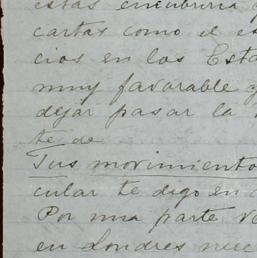 estas encubriria
cartas como el es
cios en los Esta
muy favorable y
dejar pasar la
te de
Tus movimiento
cular te digo en
Por una parte ve
en Londres nec